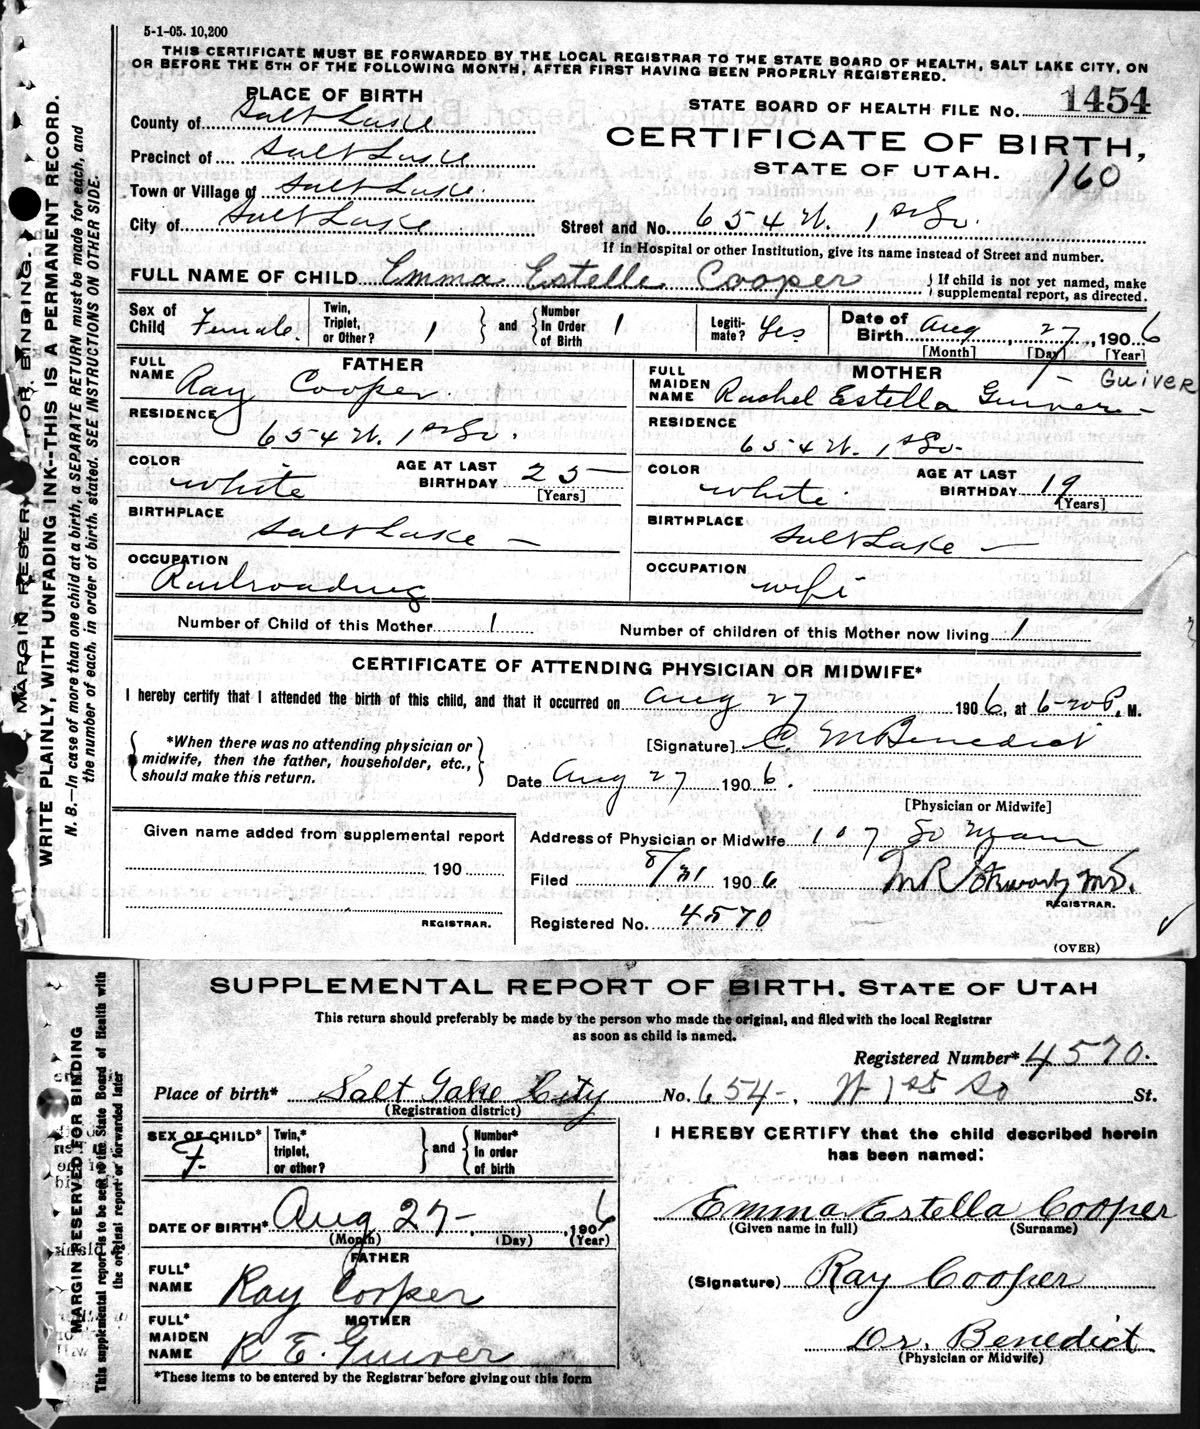 5-1-05. 10,200
THIS CERTIFICATE MUST BE FORWARDED BY THE LOCAL REGISTRAR TO THE STATE BOARD OF HEALTH, SALT LAKE CITY, ON
OR BEFORE THE 5TH OF THE FOLLOWING MONTH, AFTER FIRST HAVING BEEN PROPERLY REGISTERED.
MARGIN RESERV FOR BINDING.
WRITE PLAINLY, WITH UNFADING INK--THIS IS A PERMANENT RECORD.
N. B.—In case of more than one child at a birth, a SEPARATE RETURN must be made for each, and
the number of each, in order of birth, stated. SEE INSTRUCTIONS ON OTHER SIDE.
PLACE OF BIRTH
STATE BOARD OF HEALTH FILE No. 1454
County of Salt Lake
CERTIFICATE OF BIRTH,
Precinct of Salt Lake
STATE OF UTAH. 160
Town or Village of Salt Lake.
City of Salt Lake
Street and No. 654 W. 1st So.
If in Hospital or other Institution, give its name instead of Street and number.
FULL NAME OF CHILD Emma Estelle Cooper } If child is not yet named, make supplemental report, as directed.
Sex of Child Female. Twin, Triplet, or Other? 1 } and { Number In Order of Birth 1 Legiti- mate? Yes Date of Birth Aug 27, 1906
[Month] [Day] [Year]
FATHER
FULL NAME Ray Cooper
MOTHER
FULL MAIDEN NAME Rachel Estella Guiver — GUIVER
RESIDENCE 654 W. 1st So.
RESIDENCE 654 W. 1st So.
COLOR White AGE AT LAST BIRTHDAY 25 [Years]
COLOR White AGE AT LAST BIRTHDAY 19 [Years]
BIRTHPLACE Salt Lake —
BIRTHPLACE Salt Lake —
OCCUPATION Railroading
OCCUPATION Wife
Number of Child of this Mother 1
Number of children of this Mother now living 1
CERTIFICATE OF ATTENDING PHYSICIAN OR MIDWIFE*
I hereby certify that I attended the birth of this child, and that it occurred on Aug 27 1906, at 6-20 P. M.
{ *When there was no attending physician or midwife, then the father, householder, etc., should make this return. }
[Signature] C. M Benedict
Date Aug 27 1906.
[Physician or Midwife]
Given name added from supplemental report
190
REGISTRAR.
Address of Physician or Midwife 107 So Main
Filed 8/31 1906 M.D.
REGISTRAR.
Registered No. 4570
(OVER)
SUPPLEMENTAL REPORT OF BIRTH, STATE OF UTAH
This return should preferably be made by the person who made the original, and filed with the local Registrar
as soon as child is named.
MARGIN RESERVED FOR BINDING
This supplemental report is to be sent to the State Board of Health with
the original report or forwarded later
Registered Number* 4570.
Place of birth* Salt Lake City No. 654 W 1st So St.
(Registration district)
SEX OF CHILD* F. Twin,* triplet, or other? } and { Number* In order of birth
I HEREBY CERTIFY that the child described herein
has been named:
Emma Estella Cooper
(Given name in full) (Surname)
DATE OF BIRTH* Aug 27 — , 1906
(Month) (Day) (Year)
FATHER
FULL* NAME Ray Cooper
(Signature) Ray Cooper
MOTHER
FULL* MAIDEN NAME R E. Guiver
Dr. Benedict
(Physician or Midwife)
*These items to be entered by the Registrar before giving out this form